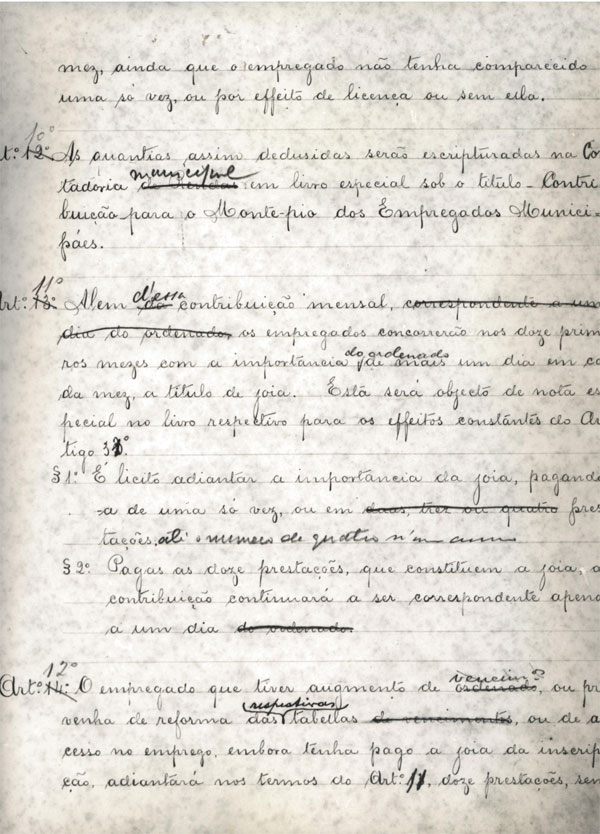 mez, ainda que o empregado não tenha comparecido
uma só vez, ou por effeito de licença ou sem ella.
10º
rt.º 12º As quantias assim dedusidas serão escripturadas na Con
municipal
tadoria de rendas em livro especial sob o titulo - Contri
buição para o Monte-pio dos Empregados Munici=
páes.
11º
Art.º 13º Alem d'essa da contribuição mensal, correspondente a um
dia do ordenado, os empregados concorrerão nos doze prim
do ordenado
ros mezes com a importância de mais um dia em ca
da mez, a titulo de joia. Está será objecto de nota es
pecial no livro respectivo para os effeitos constantes do Ar
tigo
§ 1º É licito adiantar a importancia da joia, pagando
-a de uma só vez, ou em duas, trez ou quatro pres
tações, até o numero de quatro n'um anno
§ 2º Pagas as doze prestações, que constituem a joia, a
contribuição continuará a ser correspondente apena
a um dia do ordenado.
12º
Art.º 14º O empregado que tiver augmento de ordenado, ou pr
respectivas
venha de reforma das tabellas de vencimentos, ou de a
cesso no emprego, embora tenha pago a joia da inscrip
ção, adiantará nos termos do Art.º 11, doze prestações, sem